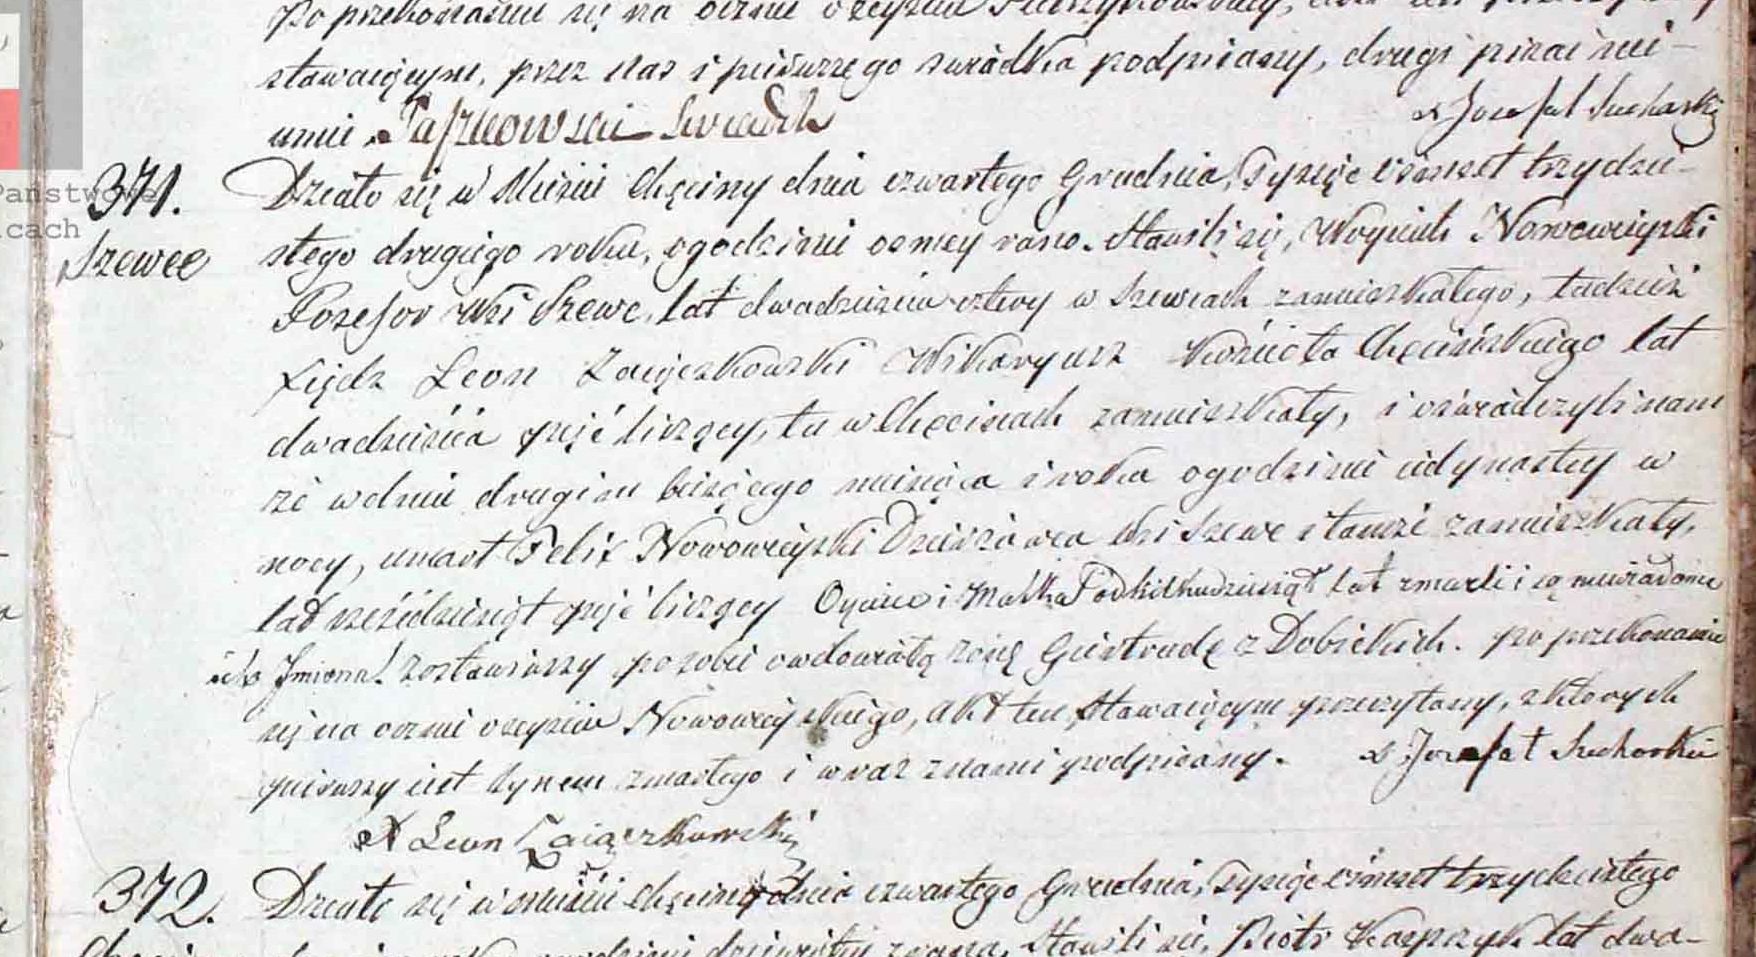 Po przekonaniu się na oczne
stawaiącym, przez nas i pierwszego swiadka podpisany, drugi pisać nie-
umie. Paszkowski Swiadek
X Jozefat Sucharski
Państwowe
371. Działo się w Mieście Chęciny dnia czwartego Grudnia, Tysiąc ośmset trzydzie-
icach
Szewce stego drugiego roku, ogodzinie osmey rano. Stawili się, Woyciech Nowowieyski
Posesor Wsi Szewc, lat dwadzieścia cztery w Szewcach zamieszkałego, tudzież
Xiądz Leon Zaiączkowski Wikaryusz Kościoła Chęcińskiego lat
dwadzieścia pięć liczący, tu w Chęcinach zamieszkały, i oświadczyli nam
że w dniu drugim bieżącego miesiąca i roku ogodzinie iedynastey w
nocy, umarł Felix Nowowieyski Dzierżawca Wsi Szewc i tamże zamieszkały,
lat sześćdziesiąt pięć liczący Oyciec i Matka od kilkudziesiąt lat zmarli i są niewiadome
ich Jmiona! zostawiwszy po sobie owdowiałą żonę Giertrudę z Dobieckich. po przekonaniu
się na oczne zeyście Nowowieyskiego, Akt ten Stawaiącym przeczytany, z których
pierwszy iest synem zmarłego i wraz z nami podpisany. X Jozefat Sucharski
X Leon Zaiączkowski
372. Działo się w Mieście Chęciny dnia czwartego Grudnia, Tysiąc ośmset trzydziestego
Stawili się, Piotr Kasprzyk lat dwa-